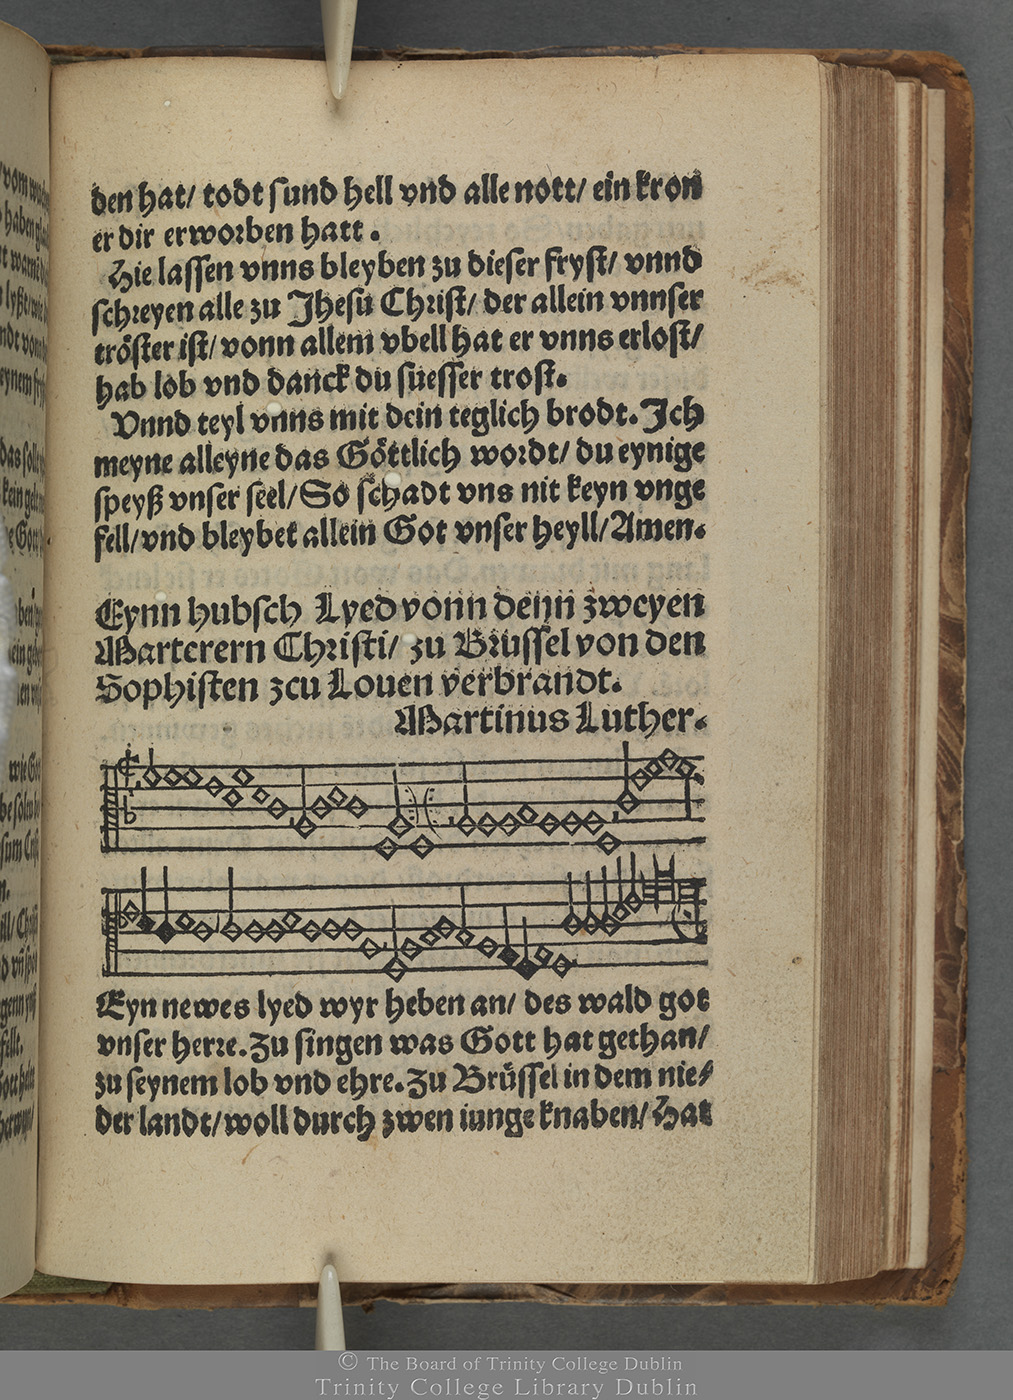 den hat/ todt sund hell vnd alle nott/ ein kron
er dir erworben hatt.
Hie lassen vnns bleyben zu dieser fryst/ vnnd
schreyen alle zu Jhesu Christ/ der allein vnnser
tröster ist/ vonn allem vbell hat er vnns erlost/
hab lob vnd danck du suesser trost.
Vnnd teyl vnns mit dein teglich brodt. Ich
meyne alleyne das Göttlich wordt/ du eynige
speyß vnser seel/ So schadt vns nit keyn vnge
fell/ vnd bleybet allein Got vnser heyll/ Amen.
Eynn hubsch Lyed vonn denn zweyen
Marterern Christi/ zu Brüssel von den
Sophisten zcu Louen verbrandt.
Martinus Luther.
Eyn newes lyed wyr heben an/ des wald got
vnser herre. Zu singen was Gott hat gethan/
zu seynem lob vnd ehre. Zu Brüssel in dem nie⸗
der landt/ woll durch zwen iunge knaben/ Hat
© The Board of Trinity College Dublin
Trinity College Library Dublin